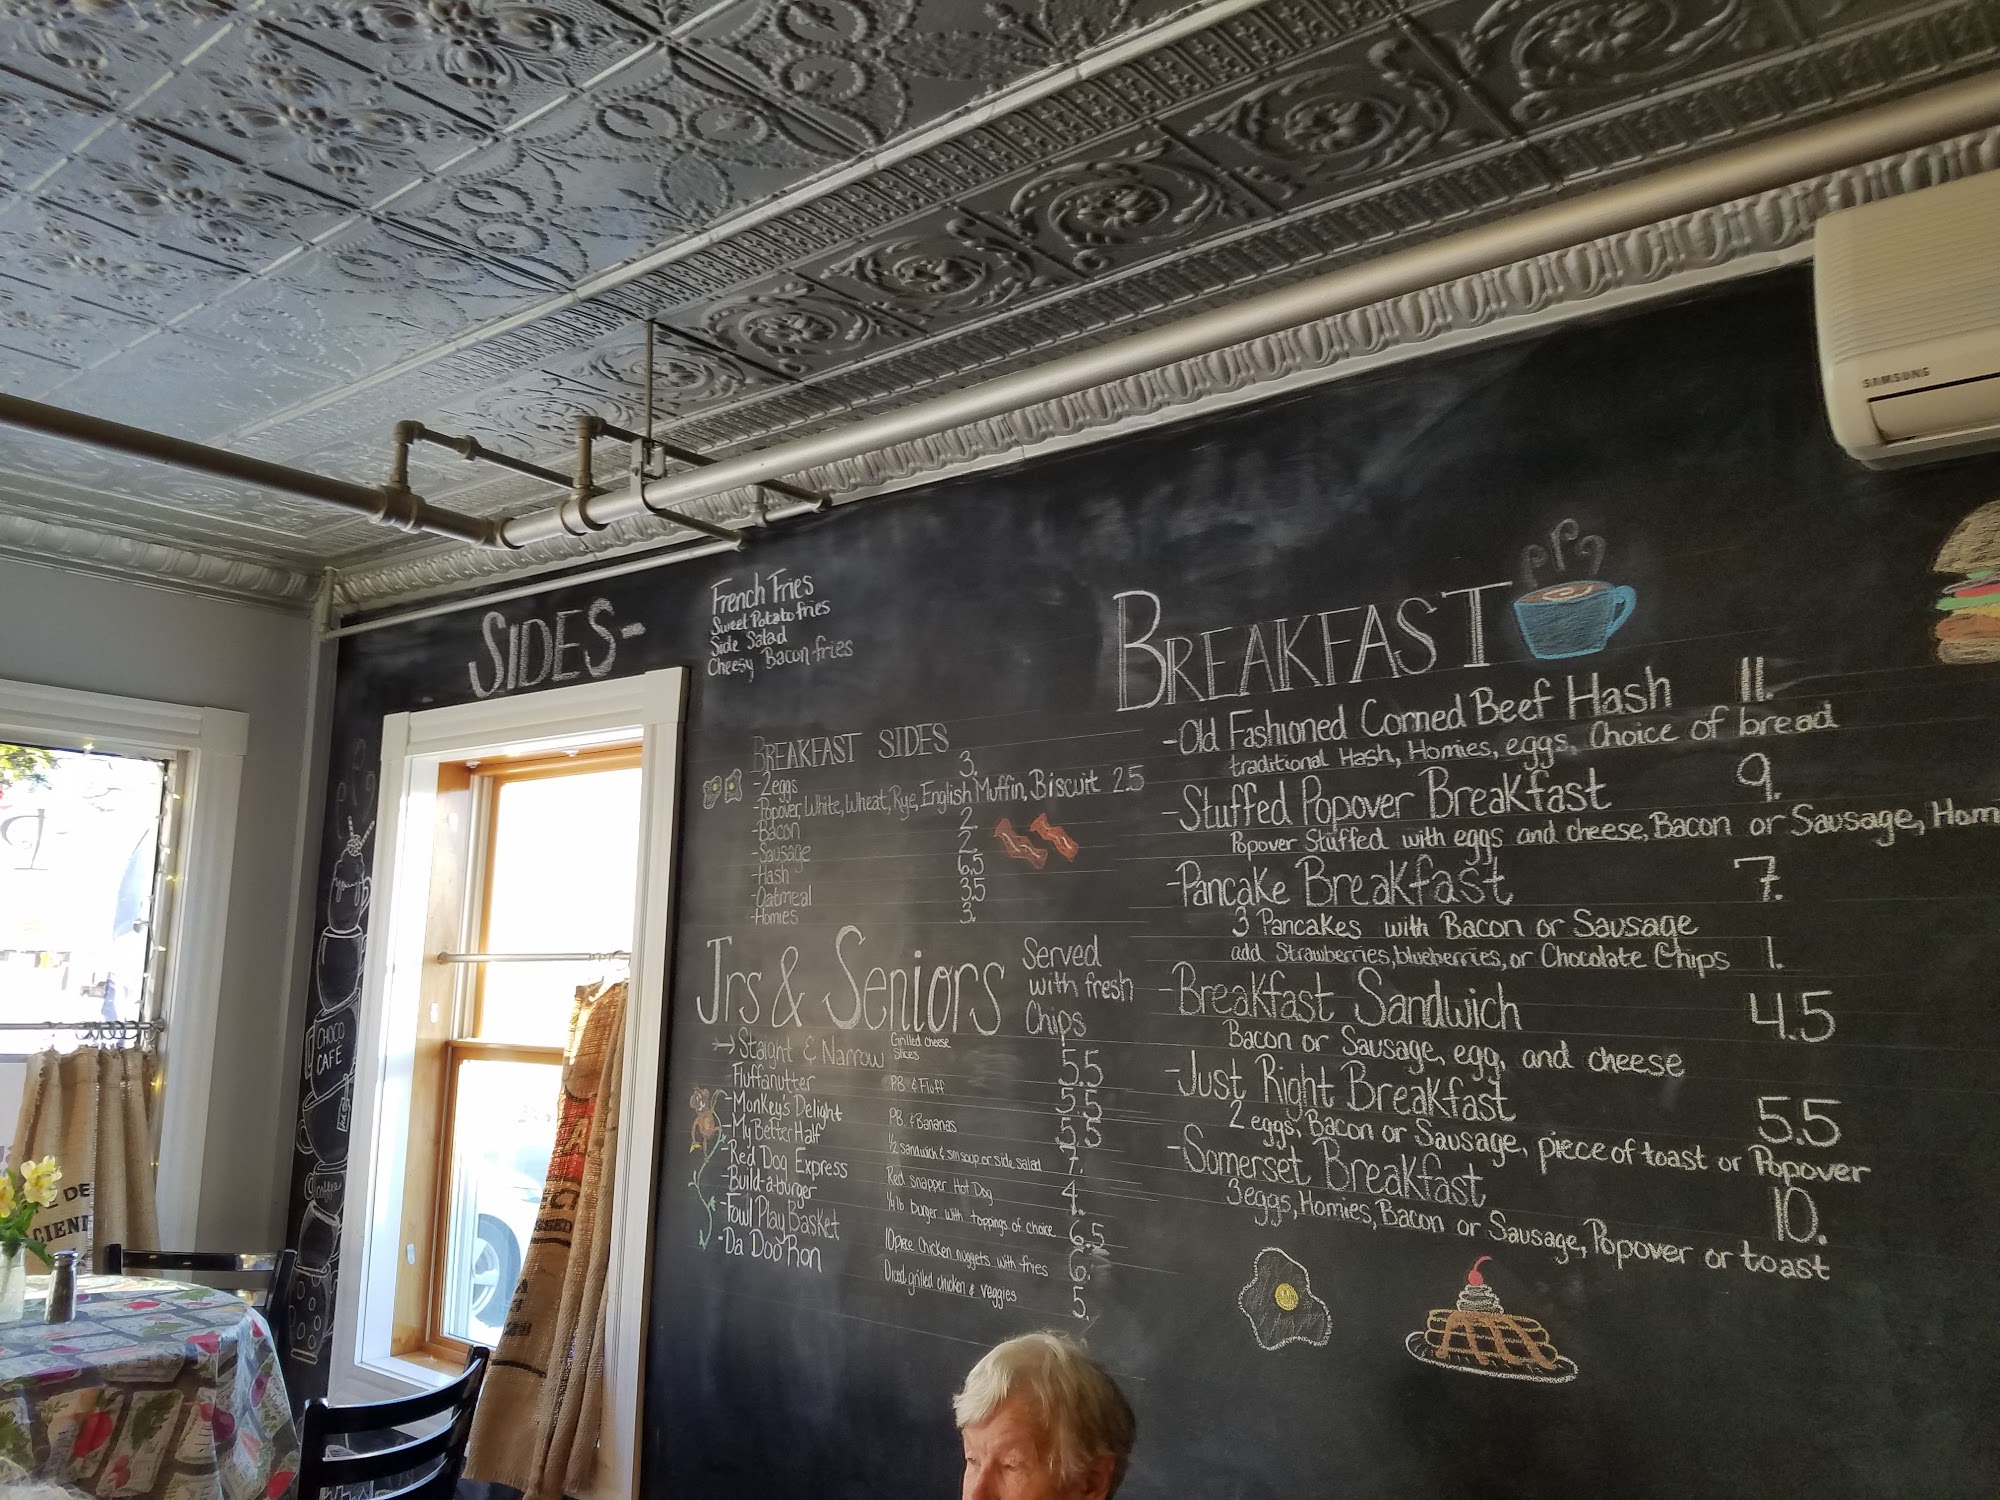 SAMSUNG
SIDES-
French Fries
Sweet Potato fries
Side Salad
Cheesy Bacon fries
BREAKFAST SIDES
-2eggs 3.
-Popover, White, Wheat, Rye, English Muffin, Biscuit 2.5
-Bacon 2.
-Sausage 2.
-Hash 6.5
-Oatmeal 3.5
-Homies 3.
Jrs & Seniors
Served
with fresh
Chips
Staight & Narrow Grilled cheese Slices 5.5
Fluffanutter P.B. & Fluff 5.5
-Monkey's Delight P.B. & Bananas 5.5
-My Better Half 1/2 sandwich & sm soup or side salad 7.
-Red Dog Express Red snapper Hot Dog 4.
-Build-a-burger 1/4 lb burger with toppings of choice 6.5
-Fowl Play Basket 10piece chicken nuggets with fries 6.
-Da Doo Ron Diced grilled chicken & veggies 5.
BREAKFAST
-Old Fashioned Corned Beef Hash 11.
traditional Hash, Homies, eggs, Choice of bread
-Stuffed Popover Breakfast 9.
Popover Stuffed with eggs and cheese, Bacon or Sausage, Hom
-Pancake Breakfast 7.
3 Pancakes with Bacon or Sausage
add Strawberries, blueberries, or Chocolate Chips 1.
-Breakfast Sandwich 4.5
Bacon or Sausage, egg, and cheese
-Just Right Breakfast 5.5
2 eggs, Bacon or Sausage, piece of toast or Popover
-Somerset Breakfast 10.
3eggs, Homies, Bacon or Sausage, Popover or toast
CHOCO
CAFÉ
coffee
DE
CIEN